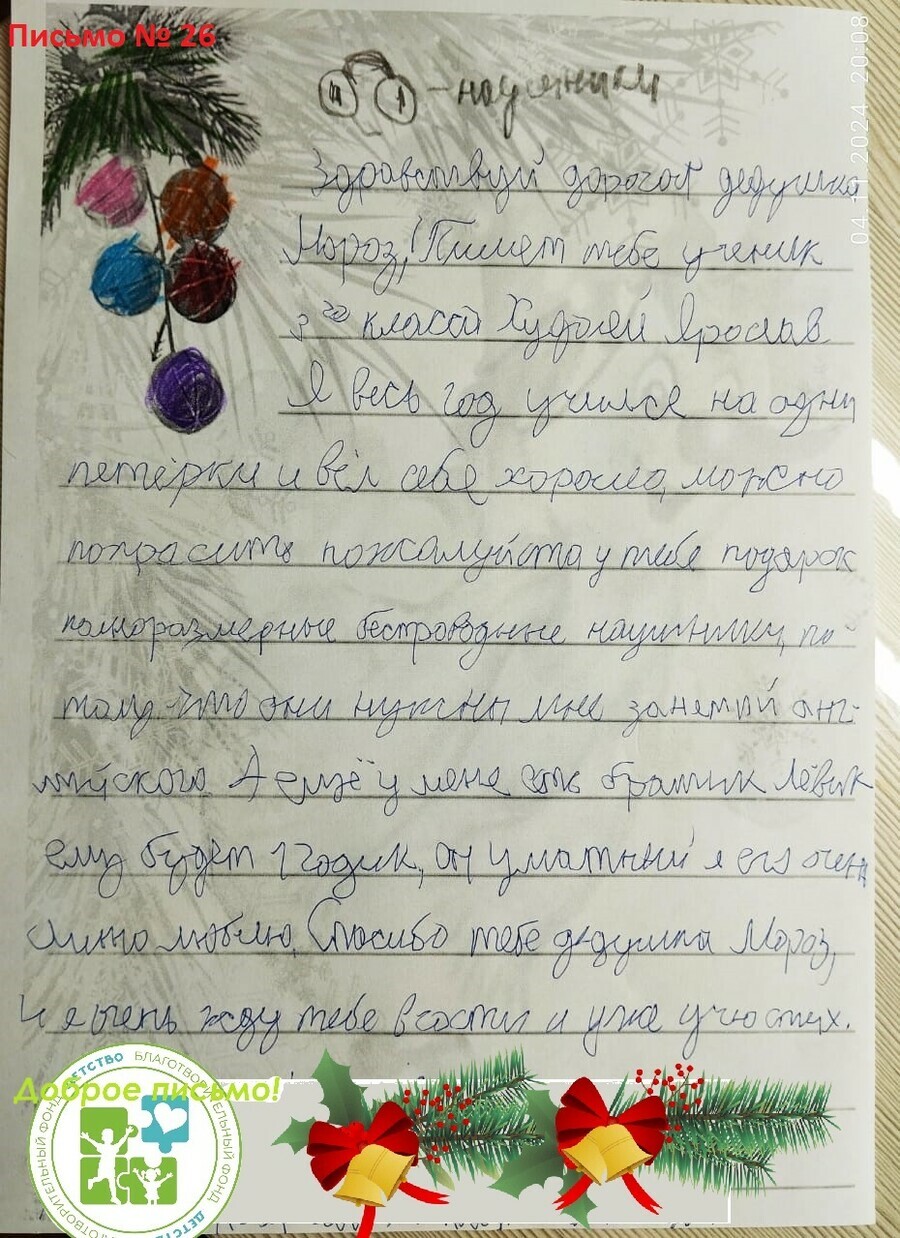 Письмо № 26
04.12.2024 20:08
- наушники
Здравствуй дорогой дедушка
Мороз! Пишет тебе ученик
3 го класса Ярослав
Я весь год учился на одни
петёрки и вёл себя хорошо, можно
попрасить пожалуйста у тебя подарок
полноразмерные беспроводные наушники, па
тому что они нужны мне занятий анг-
лийского. А ещё у меня есть братик Лёвик
ему будет 1 годик, он уматный я его очень
сильно люблю. Спасибо тебе дедушка Мороз,
И я очень жду тебе в гости и уже учю стих.
Доброе письмо!
ДЕТСТВО БЛАГОТВОРИТЕЛЬНЫЙ ФОНД